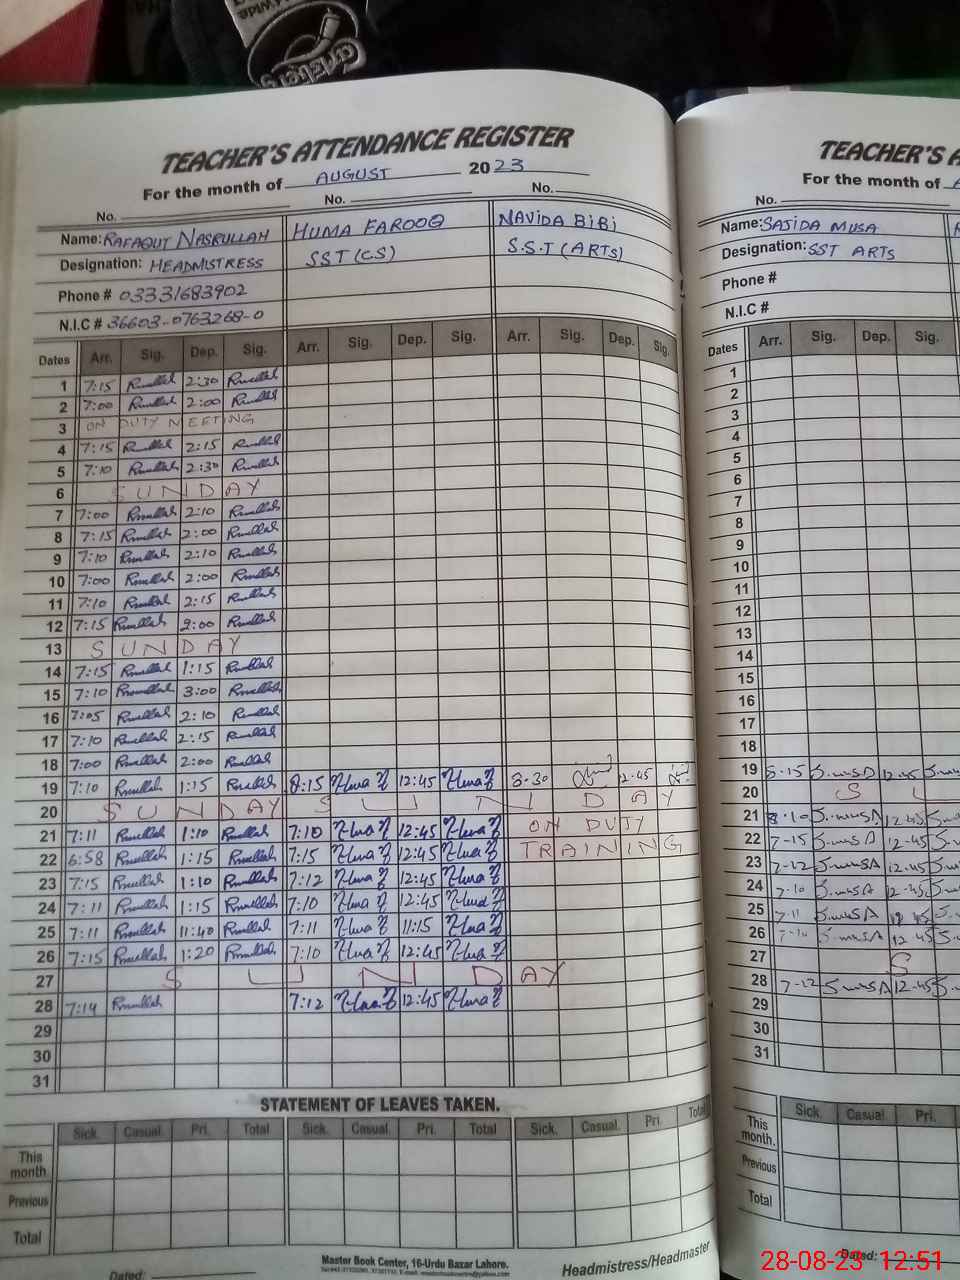 Carlsberg
TEACHER'S ATTENDANCE REGISTER
For the month of AUGUST 2023
No. No. No.
Name: RAFAQUT NASRULLAH HUMA FAROOQ NAVIDA BiBi
Designation: HEADMISTRESS SST (CS) S.S.T (ARTS)
Phone # 03331683902
N.I.C # 36603-0763268-0
Dates Arr. Sig. Dep. Sig. Arr. Sig. Dep. Sig. Arr. Sig. Dep. Sig.
1 7:15 Rnullah 2:30 Rnullah
2 7:00 Rnullah 2:00 Rnullah
3 ON DUTY MEETING
4 7:15 Rnullah 2:15 Rnullah
5 7:10 Rnullah 2:30 Rnullah
6 SUNDAY
7 7:00 Rnullah 2:10 Rnullah
8 7:15 Rnullah 2:00 Rnullah
9 7:10 Rnullah 2:10 Rnullah
10 7:00 Rnullah 2:00 Rnullah
11 7:10 Rnullah 2:15 Rnullah
12 7:15 Rnullah 2:00 Rnullah
13 SUNDAY
14 7:15 Rnullah 1:15 Rnullah
15 7:10 Rnullah 3:00 Rnullah
16 7:05 Rnullah 2:10 Rnullah
17 7:10 Rnullah 2:15 Rnullah
18 7:00 Rnullah 2:00 Rnullah
19 7:10 Rnullah 1:15 Rnullah 8:15 Huma f 12:45 Huma f 8-30 12-45
20 SUNDAY SUNDAY
21 7:11 Rnullah 1:10 Rnullah 7:10 Huma f 12:45 Huma f ON DUTY
22 6:58 Rnullah 1:15 Rnullah 7:15 Huma f 12:45 Huma f TRAINING
23 7:15 Rnullah 1:10 Rnullah 7:12 Huma f 12:45 Huma f
24 7:11 Rnullah 1:15 Rnullah 7:10 Huma f 12:45 Huma f
25 7:11 Rnullah 11:40 Rnullah 7:11 Huma f 11:15 Huma f
26 7:15 Rnullah 1:20 Rnullah 7:10 Huma f 12:45 Huma f
27 SUNDAY
28 7:14 Rnullah 7:12 Huma f 12:45 Huma f
29
30
31
STATEMENT OF LEAVES TAKEN.
Sick. Casual. Pri. Total Sick. Casual. Pri. Total Sick. Casual. Pri. Total
This month.
Previous
Total
Master Book Center, 16-Urdu Bazar Lahore.
Dated: Headmistress/Headmaster
TEACHER'S A
For the month of A
No.
Name: SAJIDA MUSA
Designation: SST ARTS
Phone #
N.I.C #
Dates Arr. Sig. Dep. Sig.
1
2
3
4
5
6
7
8
9
10
11
12
13
14
15
16
17
18
19 8-15 S.musA 12-45 S.mus
20 S U
21 8-10 S.musA 12-45 S.mus
22 7-15 S.musA 12-45 S.mu
23 7-12 S.musA 12-45 S.mu
24 7-10 S.musA 12-45 S.mu
25 7-11 S.musA S.mu
26 7-10 S.musA 12-45 S.m
27 S
28 7-12 S.musA 12-45 S.m
29
30
31
Sick. Casual. Pri.
This month.
Previous
Total
Dated:
28-08-23 12:51